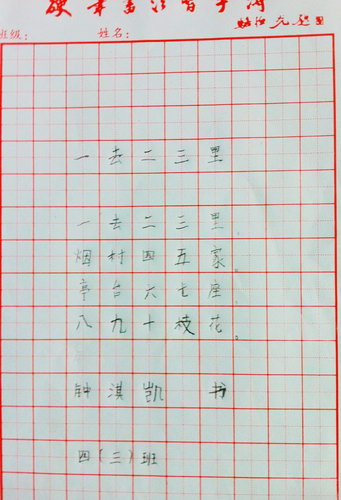 硬笔书法习字
班级: 姓名:
一去二三里
一去二三里
烟村四五家。
亭台六七座
八九十枝花。
钟淇凯 书
四(三)班